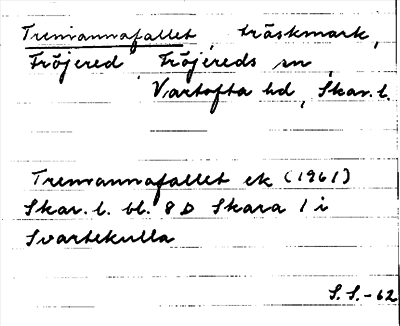 Tremannafallet, träskmark,
Fröjered, Fröjereds sn,
Vartofta hd, Skar. l.
Tremannafallet ek (1961)
Skar. l. bl. 8 D Skara 1 i
Svartekulla
S. S. -62